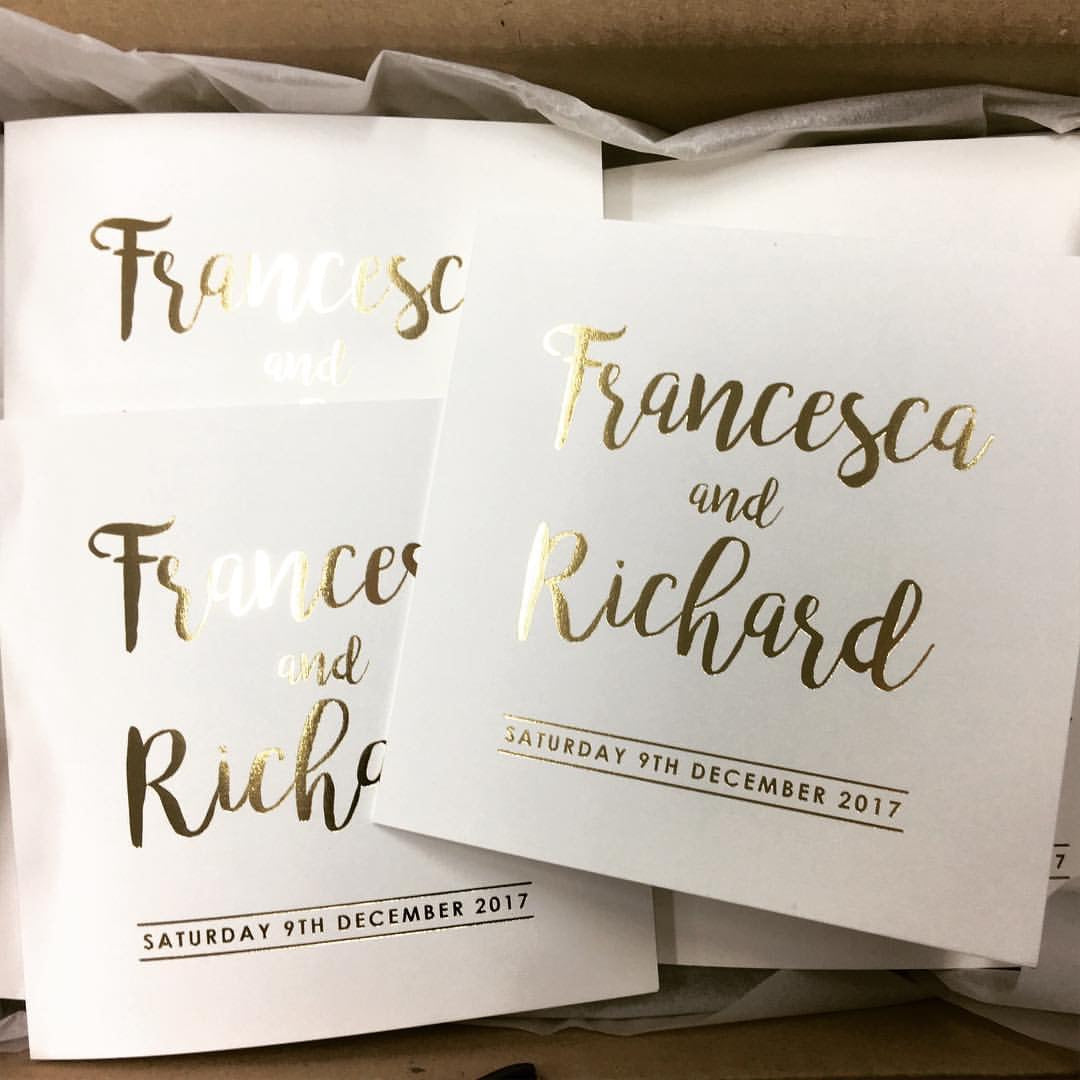 Francesc
and
Frances
and
Richa
SATURDAY 9TH DECEMBER 2017
Francesca
and
Richard
SATURDAY 9TH DECEMBER 2017
7